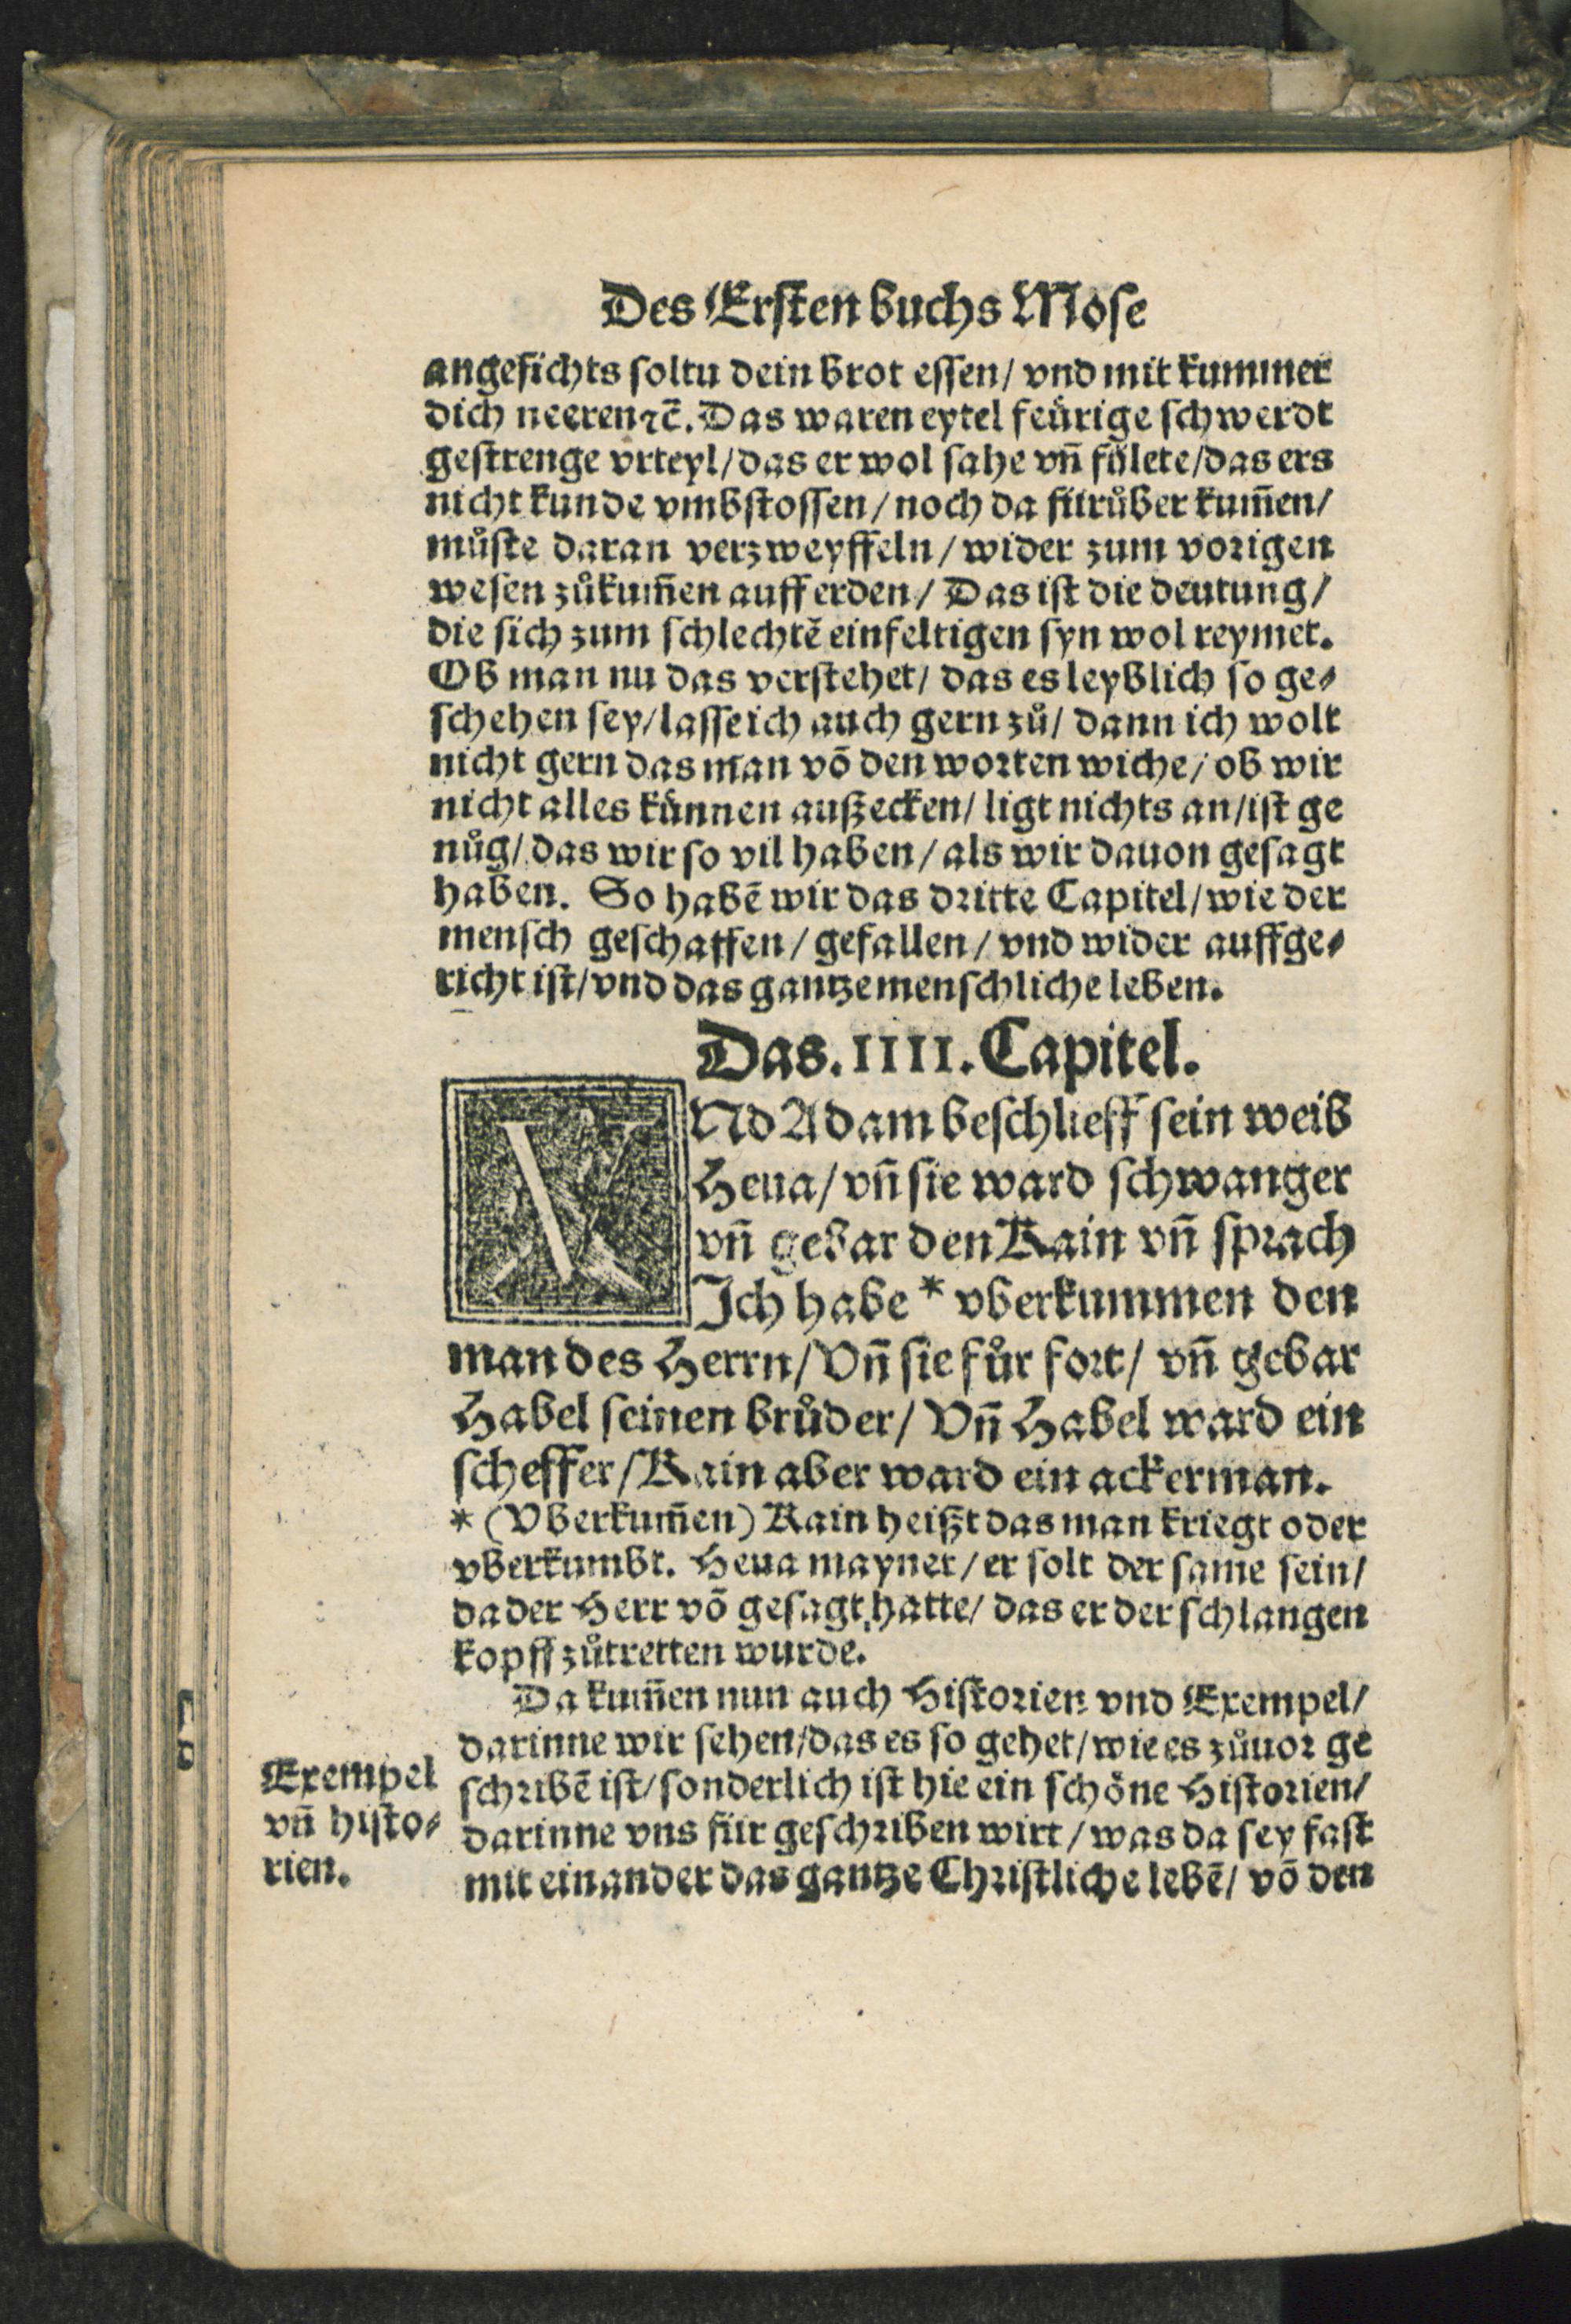 Des Ersten buchs Mose
angesichts soltu dein brot essen/ vnd mit kummer
dich neeren ꝛc̃. Das waren eytel feürige schwerdt
gestrenge vrteyl/ das er wol sahe vñ fůlete/ das ers
nicht kunde vmbstossen/ noch da fürůber kum̃en/
můste daran verzweyffeln/ wider zum vorigen
wesen zůkum̃en auff erden/ Das ist die deutung/
die sich zum schlechtẽ einfeltigen syn wol reymet.
Ob man nu das verstehet/ das es leyblich so ge⸗
schehen sey/ lasse ich auch gern zů/ dann ich wolt
nicht gern das man võ den worten wiche/ ob wir
nicht alles künnen außecken/ ligt nichts an/ ist ge
nůg/ das wir so vil haben/ als wir dauon gesagt
haben. So habẽ wir das dritte Capitel/ wie der
mensch geschaffen/ gefallen/ vnd wider auffge⸗
richt ist/ vnd das gantze menschliche leben.
Das. IIII. Capitel.
VNd Adam beschlieff sein weib
Heua/ vñ sie ward schwanger
vñ gebar den Kain vñ sprach
Ich habe * vberkummen den
man des Herrn/ Vñ sie für fort/ vñ gebar
Habel seinen brůder/ Vñ Habel ward ein
scheffer/ Kain aber ward ein ackerman.
* (Vberkum̃en) Kain heißt das man kriegt oder
vberkumbt. Heua maynet/ er solt der same sein/
da der Herr võ gesagt hatte/ das er der schlangen
kopff zůtretten wurde.
Da kum̃en nun auch Historien vnd Exempel/
darinne wir sehen/ das es so gehet/ wie es zůuor ge
schribẽ ist/ sonderlich ist hie ein schöne Historien/
darinne vns für geschriben wirt/ was da sey fast
mit einander das gantze Christliche lebẽ/ võ den
Exempel
vñ histo⸗
rien.